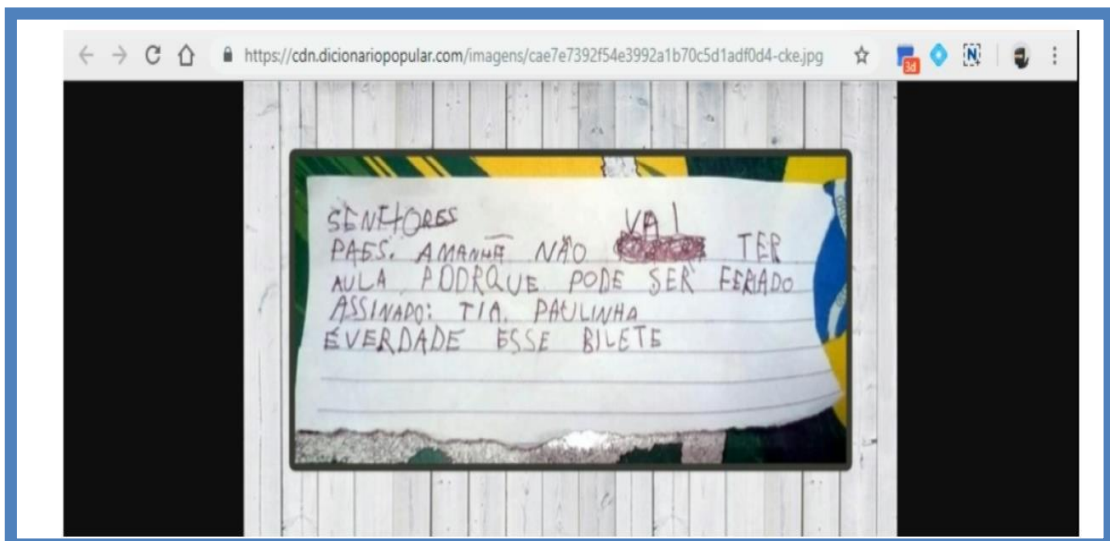 https://cdn.dicionariopopular.com/imagens/cae7e7392f54e3992a1b70c5d1adf0d4-cke.jpg
3d
N
SENHORES
PAES. AMANHÃ NÃO VAI TER
AULA PODRQUE PODE SER FERIADO
ASSINADO: TIA. PAULINHA
ÉVERDADE ESSE BILETE